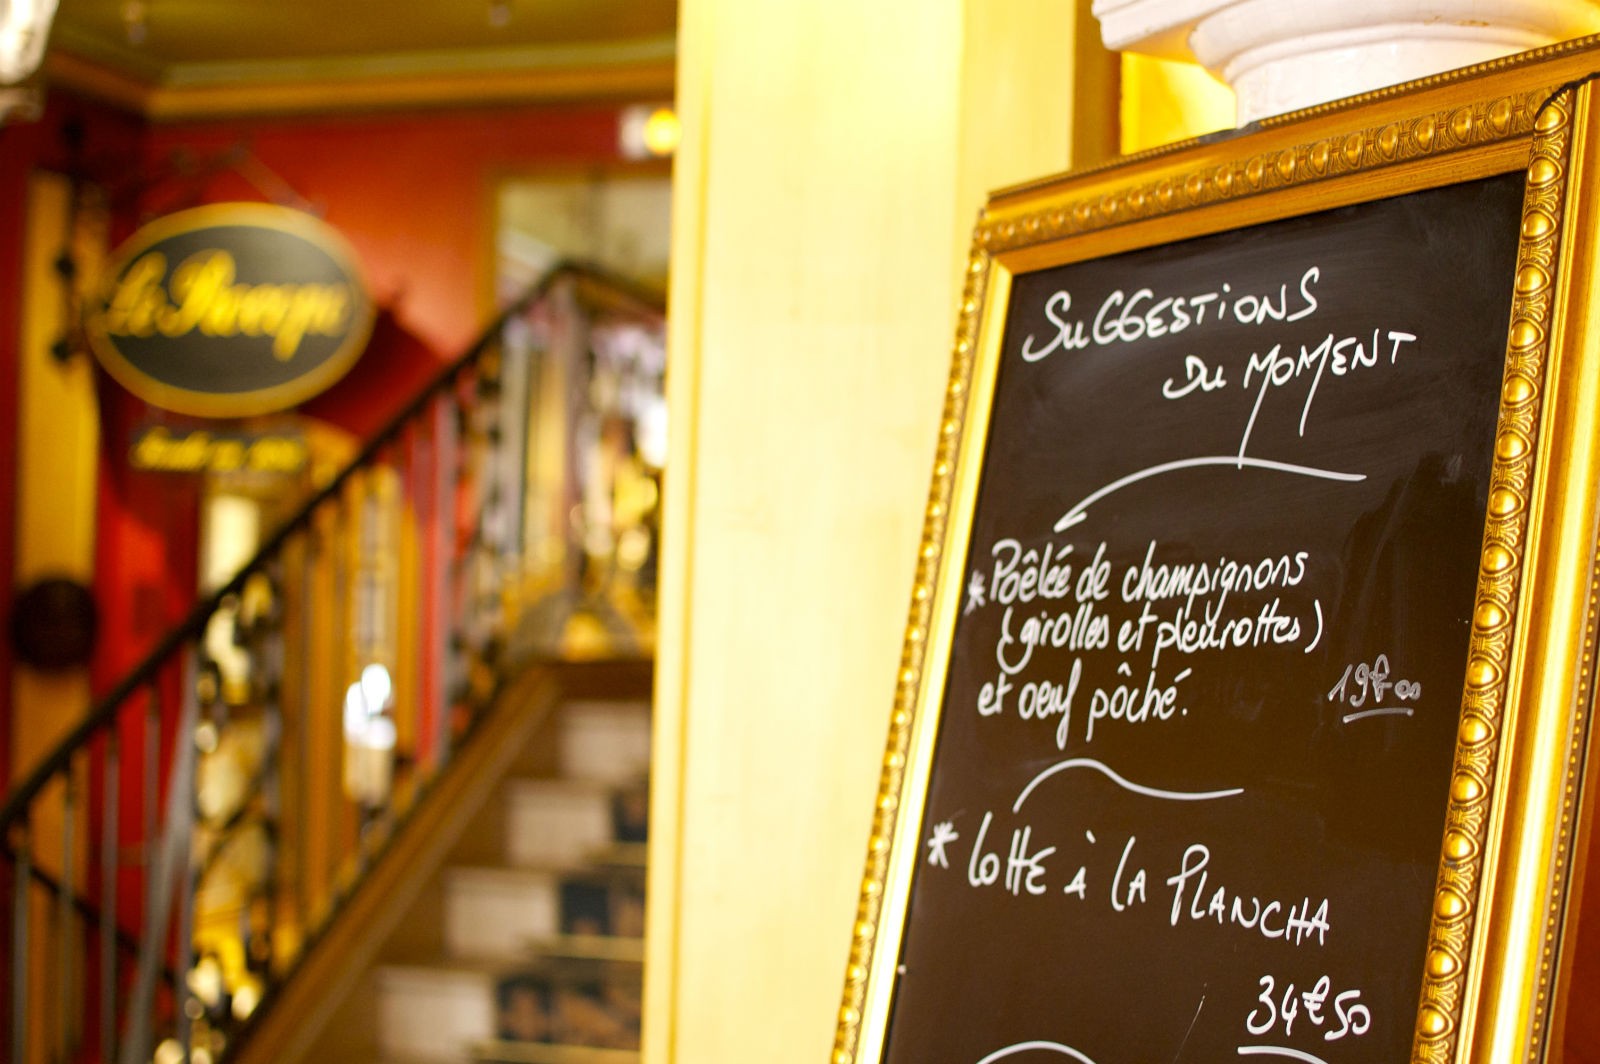 SUGGESTIONS
DU MOMENT
* Poêlée de champignons
(girolles et pleurottes)
et oeuf pôché.
19€00
* Lotte à la Plancha
34€50